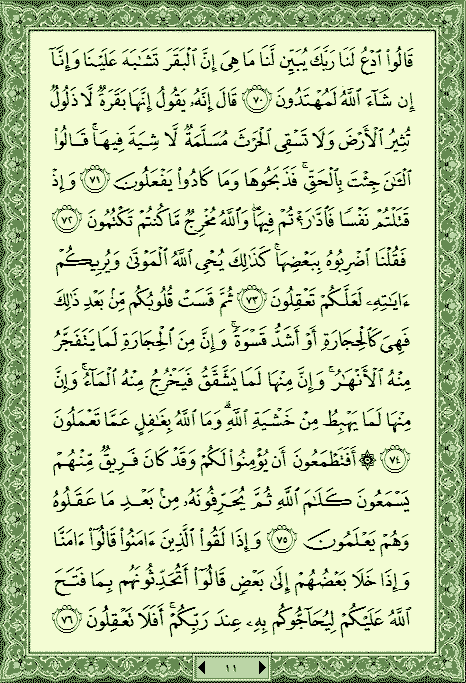 قَالُوا۟ ٱدْعُ لَنَا رَبَّكَ يُبَيِّن لَّنَا مَا هِىَ إِنَّ ٱلْبَقَرَ تَشَٰبَهَ عَلَيْنَا وَإِنَّآ
إِن شَآءَ ٱللَّهُ لَمُهْتَدُونَ ٧٠ قَالَ إِنَّهُۥ يَقُولُ إِنَّهَا بَقَرَةٌ لَّا ذَلُولٌ
تُثِيرُ ٱلْأَرْضَ وَلَا تَسْقِى ٱلْحَرْثَ مُسَلَّمَةٌ لَّا شِيَةَ فِيهَا ۚ قَالُوا۟
ٱلْـَٰٔنَ جِئْتَ بِٱلْحَقِّ ۚ فَذَبَحُوهَا وَمَا كَادُوا۟ يَفْعَلُونَ ٧١ وَإِذْ
قَتَلْتُمْ نَفْسًا فَٱدَّٰرَْٰٔتُمْ فِيهَا ۖ وَٱللَّهُ مُخْرِجٌ مَّا كُنتُمْ تَكْتُمُونَ ٧٢
فَقُلْنَا ٱضْرِبُوهُ بِبَعْضِهَا ۚ كَذَٰلِكَ يُحْىِ ٱللَّهُ ٱلْمَوْتَىٰ وَيُرِيكُمْ
ءَايَٰتِهِۦ لَعَلَّكُمْ تَعْقِلُونَ ٧٣ ثُمَّ قَسَتْ قُلُوبُكُم مِّنۢ بَعْدِ ذَٰلِكَ
فَهِىَ كَٱلْحِجَارَةِ أَوْ أَشَدُّ قَسْوَةً ۚ وَإِنَّ مِنَ ٱلْحِجَارَةِ لَمَا يَتَفَجَّرُ
مِنْهُ ٱلْأَنْهَٰرُ ۚ وَإِنَّ مِنْهَا لَمَا يَشَّقَّقُ فَيَخْرُجُ مِنْهُ ٱلْمَآءُ ۚ وَإِنَّ
مِنْهَا لَمَا يَهْبِطُ مِنْ خَشْيَةِ ٱللَّهِ ۗ وَمَا ٱللَّهُ بِغَٰفِلٍ عَمَّا تَعْمَلُونَ
٧٤ ۞ أَفَتَطْمَعُونَ أَن يُؤْمِنُوا۟ لَكُمْ وَقَدْ كَانَ فَرِيقٌ مِّنْهُمْ
يَسْمَعُونَ كَلَٰمَ ٱللَّهِ ثُمَّ يُحَرِّفُونَهُۥ مِنۢ بَعْدِ مَا عَقَلُوهُ
وَهُمْ يَعْلَمُونَ ٧٥ وَإِذَا لَقُوا۟ ٱلَّذِينَ ءَامَنُوا۟ قَالُوٓا۟ ءَامَنَّا
وَإِذَا خَلَا بَعْضُهُمْ إِلَىٰ بَعْضٍ قَالُوٓا۟ أَتُحَدِّثُونَهُم بِمَا فَتَحَ
ٱللَّهُ عَلَيْكُمْ لِيُحَآجُّوكُم بِهِۦ عِندَ رَبِّكُمْ ۚ أَفَلَا تَعْقِلُونَ ٧٦
١١